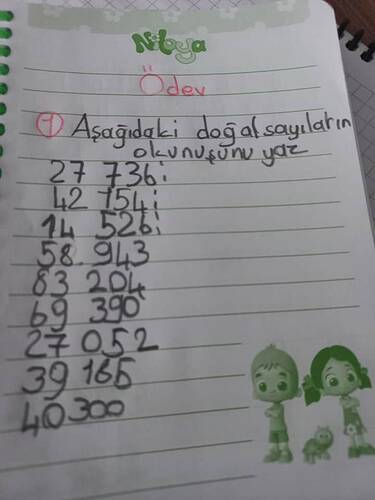 Nitya
Ödev
1 Aşağıdaki doğal sayıların
okunuşunu yaz
27 736;
42 154;
14 526;
58 943
83 204
69 390
27 052
39 165
40 300